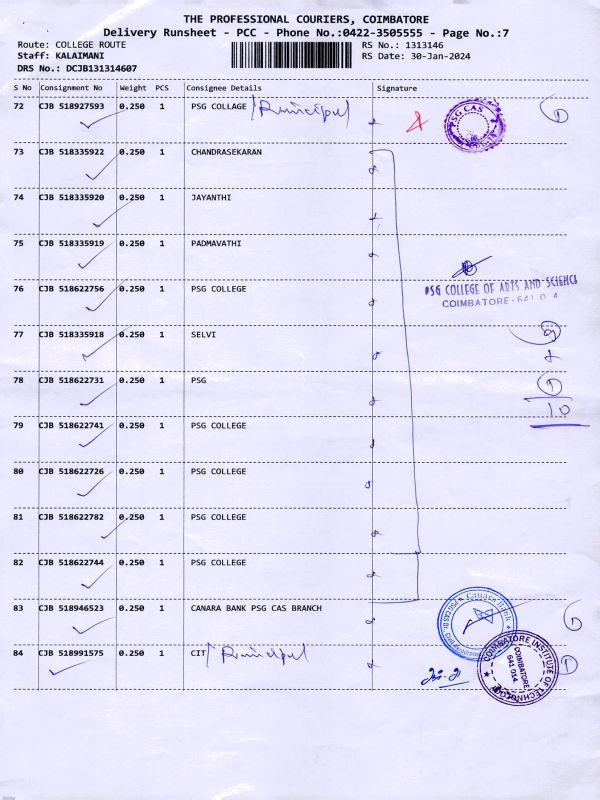 THE PROFESSIONAL COURIERS, COIMBATORE
Delivery Runsheet - PCC - Phone No.:0422-3505555 - Page No.:7
Route: COLLEGE ROUTE
RS No.: 1313146
Staff: KALAIMANI
RS Date: 30-Jan-2024
DRS No.: DCJB131314607
S No Consignment No Weight PCS Consignee Details Signature
72 CJB 518927593 0.250 1 PSG COLLAGE
PSG CAS
73 CJB 518335922 0.250 1 CHANDRASEKARAN
74 CJB 518335920 0.250 1 JAYANTHI
75 CJB 518335919 0.250 1 PADMAVATHI
76 CJB 518622756 0.250 1 PSG COLLEGE
PSG COLLEGE OF ARTS AND SCIENCE
COIMBATORE-641 0 4
77 CJB 518335918 0.250 1 SELVI
78 CJB 518622731 0.250 1 PSG
1
10
79 CJB 518622741 0.250 1 PSG COLLEGE
80 CJB 518622726 0.250 1 PSG COLLEGE
81 CJB 518622782 0.250 1 PSG COLLEGE
82 CJB 518622744 0.250 1 PSG COLLEGE
83 CJB 518946523 0.250 1 CANARA BANK PSG CAS BRANCH
Canara Bank
84 CJB 518991575 0.250 1 CIT
COIMBATORE INSTITUTE OF TECHNOLOGY
COIMBATORE
641 014.